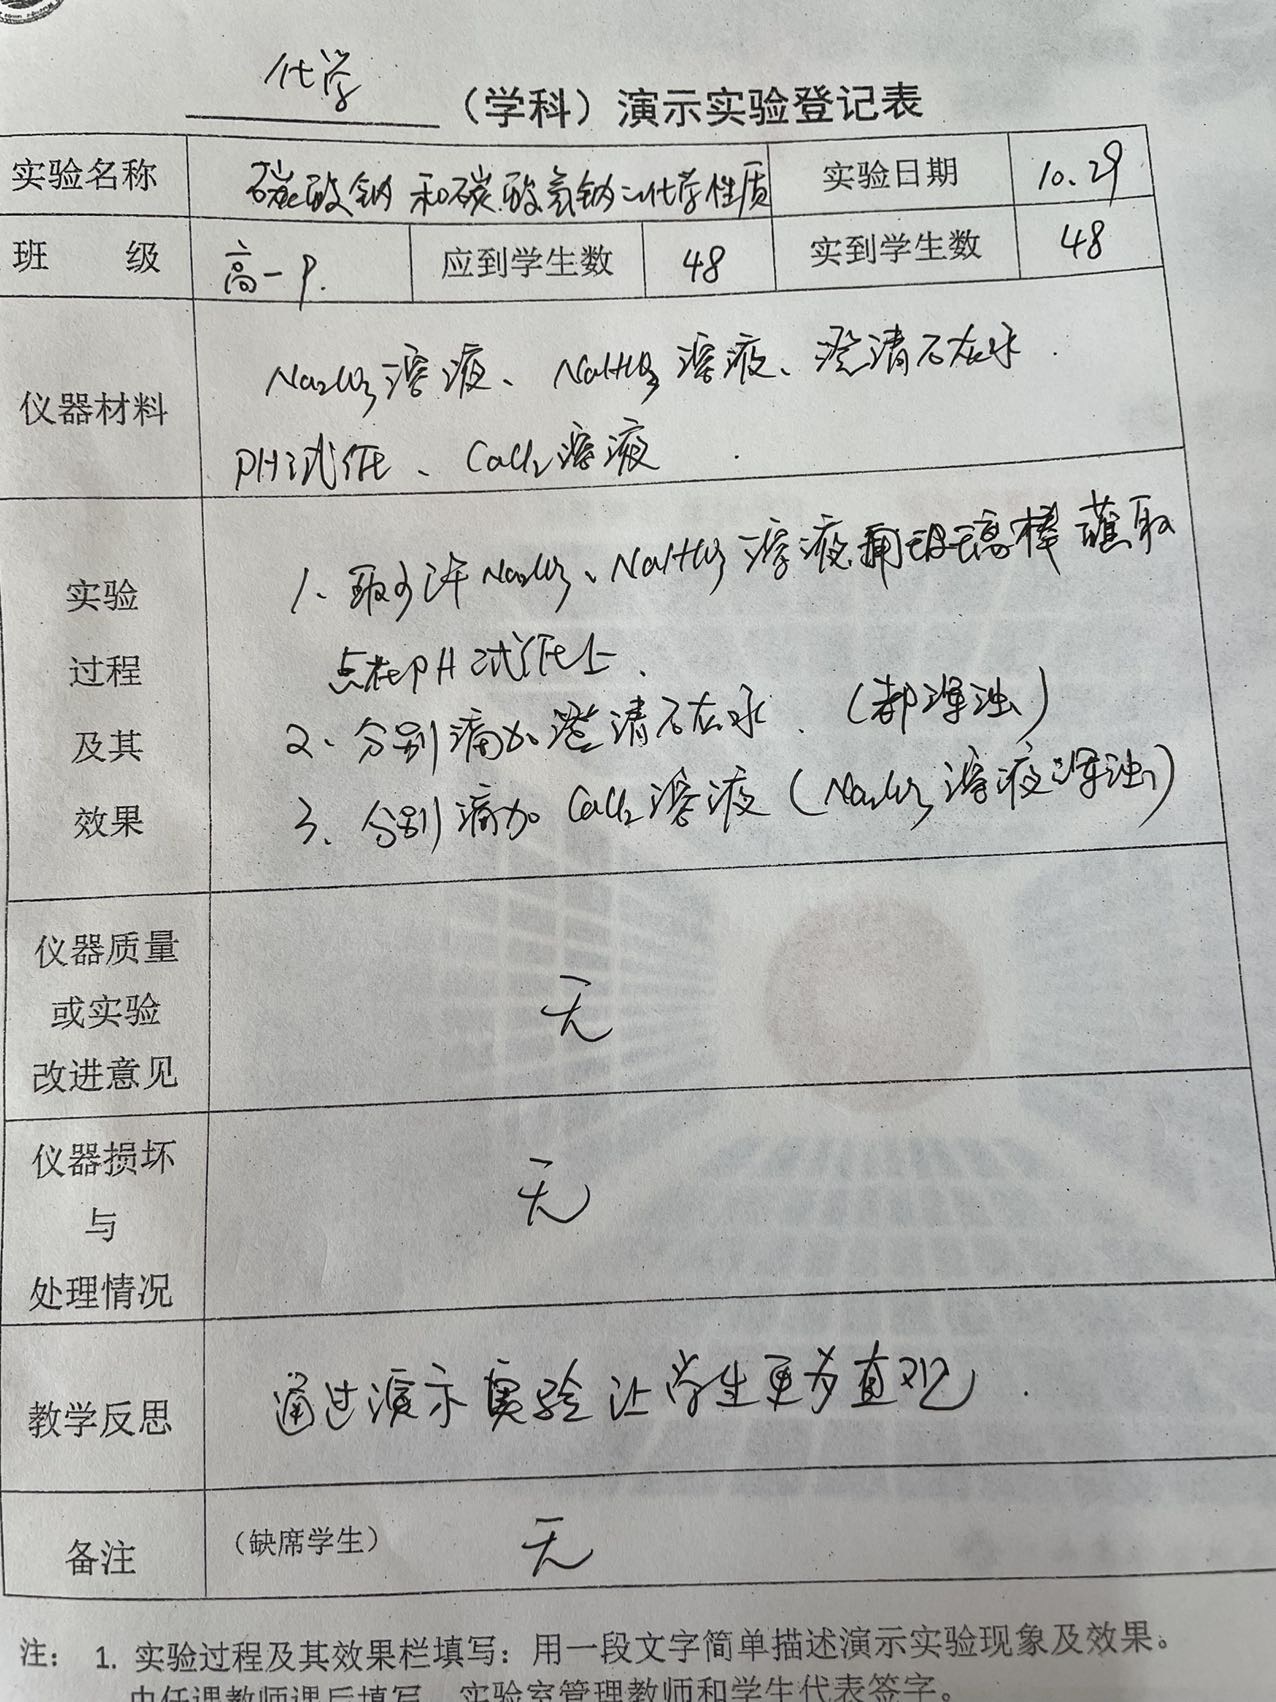 化学 (学科) 演示实验登记表
实验名称 碳酸钠和碳酸氢钠的化学性质 实验日期 10.29
班 级 高一9. 应到学生数 48 实到学生数 48
仪器材料
Na₂CO₃溶液、NaHCO₃溶液、澄清石灰水.
PH试纸、CaCl₂溶液
实验
过程
及其
效果
1. 取少许Na₂CO₃、NaHCO₃溶液用玻璃棒蘸取
点在PH试纸上.
2、分别滴加澄清石灰水.(都浑浊)
3、分别滴加CaCl₂溶液(Na₂CO₃溶液浑浊)
仪器质量
或实验
改进意见
无
仪器损坏
与
处理情况
无
教学反思 通过演示实验让学生更为直观.
备注 (缺席学生) 无
注: 1. 实验过程及其效果栏填写:用一段文字简单描述演示实验现象及效果。
由任课教师课后填写,实验室管理教师和学生代表签字。